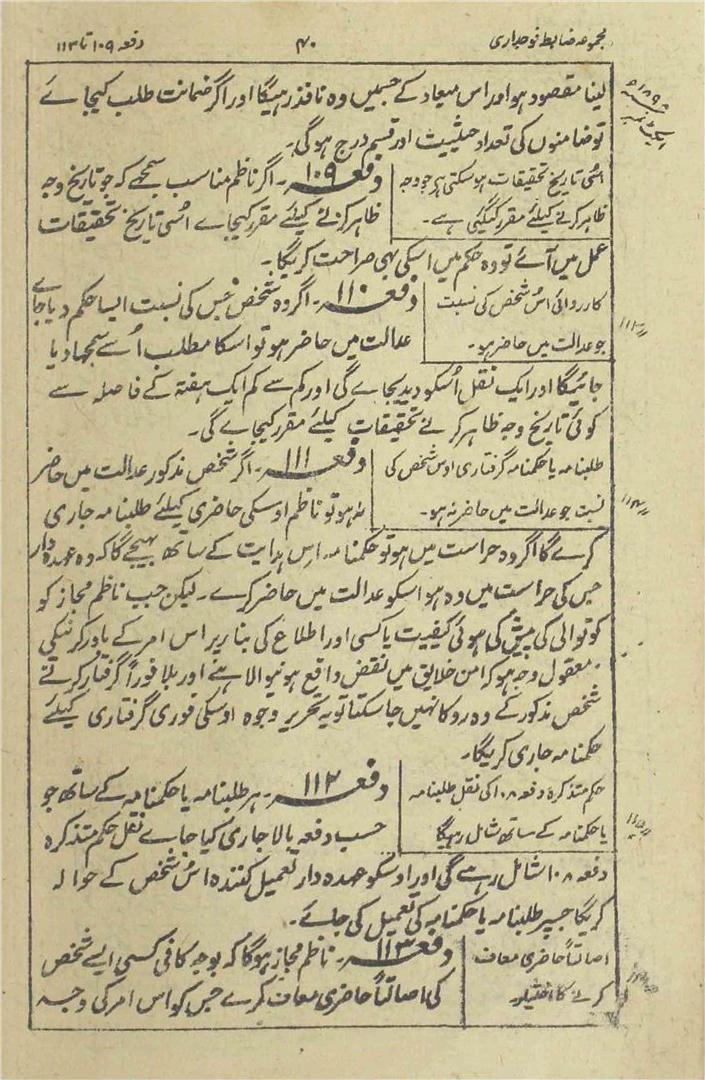 مجموعہ ضابطہ فوجداری
۴۰
دفعہ ۱۰۹ تا ۱۱۳
لینا مقصود ہو اور اس میعاد کے جسمیں وہ نافذ رہیگا اور اگر ضمانت طلب کیجاے
تو ضامنوں کی تعداد حیثیت اور قسم درج ہوگی۔
اسی تاریخ تحقیقات ہوسکتی ہر جو وجہ
ظاہر کرنے کیلئے مقرر کیگئی ہے۔
دفعہ ۱۰۹۔ اگر ناظم مناسب سمجھے کہ جو تاریخ وجہ
ظاہر کرنے کیلئے مقرر کیجاے اسی تاریخ تحقیقات
عمل میں آئے تو وہ حکم میں اسکی بھی صراحت کریگا۔
کارروائی اس شخص کی نسبت
جو عدالت میں حاضر ہو۔
دفعہ ۱۱۰۔ اگر وہ شخص جس کی نسبت ایسا حکم دیا جاے
عدالت میں حاضر ہو تو اسکا مطلب اُسے سمجھا دیا
جائیگا اور ایک نقل اُسکو دیدیجاے گی اور کم سے کم ایک ہفتہ کے فاصلہ سے
کوئی تاریخ وجہ ظاہر کرنے تحقیقات کیلئے مقرر کیجاے گی۔
طلبنامہ یا حکمنامہ گرفتاری اوس شخص کی
نسبت جو عدالت میں حاضر نہ ہو۔
دفعہ ۱۱۱۔ اگر شخص مذکور عدالت میں حاضر
نہ ہو تو ناظم اوسکی حاضری کیلئے طلبنامہ جاری
کرے گا اگر وہ حراست میں ہو تو حکمنامہ اس ہدایت کے ساتھ بھیجے گا کہ وہ عہدہ دار
جس کی حراست میں وہ ہو اسکو عدالت میں حاضر کرے۔ لیکن جب ناظم مجاز کو
کوتوالی کی پیش کی ہوئی کیفیت یا کسی اور اطلاع کی بنا پر اس امر کے باور کرنیکی
معقول وجہ ہو کہ امن خلایق میں نقض واقع ہونیوالا ہے اور بلا فوراً گرفتار کرنے
شخص مذکور کے وہ روکا نہیں جاسکتا تو بہ تحریر وجوہ اوسکی فوری گرفتاری کیلئے
حکمنامہ جاری کریگا۔
حکم متذکرہ دفعہ ۱۰۸ کی نقل طلبنامہ
یا حکمنامہ کے ساتھ شامل رہیگا
دفعہ ۱۱۲۔ ہر طلبنامہ یا حکمنامہ کے ساتھ جو
حسب دفعہ بالا جاری کیا جاے نقل حکم متذکرہ
دفعہ ۱۰۸ شامل رہے گی اور اوسکو عہدہ دار تعمیل کنندہ اس شخص کے حوالہ
کریگا جسپر طلبنامہ یا حکمنامہ کی تعمیل کی جاے۔
اصالتاً حاضری معاف
کرنے کا اختیار۔
دفعہ ۱۱۳۔ ناظم مجاز ہوگا کہ بوجہ کافی کسی ایسے شخص
کی اصالتاً حاضری معاف کرے جس کو اس امر کی وجہ